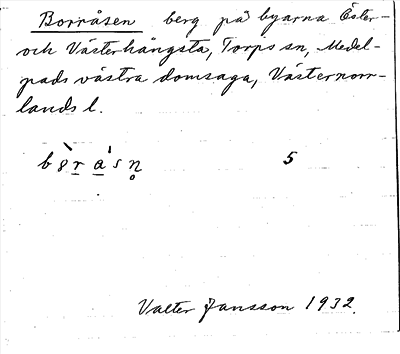 Borråsen berg på byarna Öster-
och Västerhångsta, Torps sn, Medel-
pads västra domsaga, Västernorr-
lands l.
5
Valter Jansson 1932.